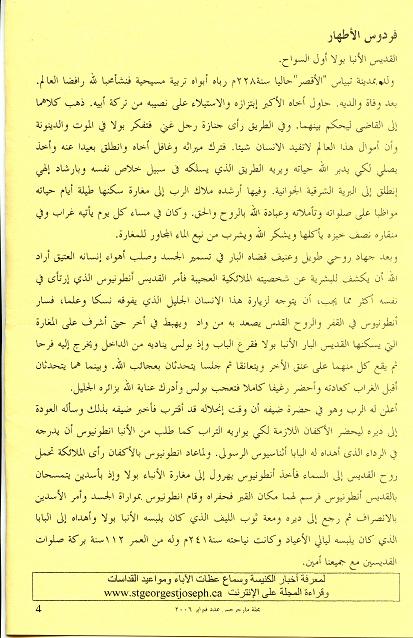 فردوس الأطهار
القديس الأنبا بولا أول السواح.
ولد بمدينة تيباس "الأقصر" حاليا سنة ٢٢٨م رباه أبواه تربية مسيحية فنشأ محبا لله رافضا العالم.
بعد وفاة والديه. حاول أخاه الأكبر إبتزازه والاستيلاء على نصيبه من تركة أبيه. ذهب كلاهما
إلى القاضى ليحكم بينهما. وفي الطريق رأى جنازة رجل غنى فتفكر بولا في الموت والدينونة
وأن أموال هذا العالم لاتفيد الانسان شيئا. فترك ميراثه وغافل أخاه وانطلق بعيدا عنه وأخذ
يصلى لكي يدبر الله حياته ويريه الطريق الذي يسلكه في سبيل خلاص نفسه وبارشاد إلهي
إنطلق إلى البرية الشرقية الجوانية. وفيها أرشده ملاك الرب إلى مغارة سكنها طيلة أيام حياته
مواظبا على صلواته وتأملاته وعبادة الله بالروح والحق. وكان في مساء كل يوم يأتيه غراب وفي
منقاره نصف خبزه يأكلها ويشكر الله ويشرب من نبع الماء المجاور للمغارة.
وبعد جهاد روحي طويل وعنيف قضاه البار في تسمير الجسد وصلب أهواء إنسانه العتيق أراد
الله أن يكشف للبشرية عن شخصيته الملائكية العجيبة فأمر القديس أنطونيوس الذي إرتأى في
نفسه أكثر مما يجب، أن يتوجه لزيارة هذا الانسان الجليل الذي يفوقه نسكا وعلما، فسار
أنطونيوس في القفر والروح القدس يصعد به من واد ويهبط في أخر حتى أشرف على المغارة
التي يسكنها القديس البار الأنبا بولا فقرع الباب وإذ بولس يناديه من الداخل ويخرج إليه فرحا
ثم يقع كل منهما على عنق الأخر ويتعانقا ثم جلسا يتحدثان بعجائب الله. وبينما هما يتحدثان
أقبل الغراب كعادته وأحضر رغيفا كاملا فتعجب بولس وأدرك عناية الله بزائره الجليل.
أعلن له الرب وهو في حضرة ضيفه أن وقت إنحلاله قد أقترب فأخبر ضيفه بذلك وسأله العودة
إلى ديره ليحضر الأكفان اللازمة لكي يواريه التراب كما طلب من الأنبا انطونيوس أن يدرجه
في الرداء الذى أهداه له البابا أثناسيوس الرسولى. ولماعاد انطونيوس بالأكفان رأى الملائكة تحمل
روح القديس إلى السماء فأخذ أنطونيوس يهرول إلى مغارة الأنباء بولا وإذ بأسدين يتمسحان
بالقديس أنطونيوس فرسم لهما مكان القبر فحفراه وقام انطونيوس بمواراة الجسد وأمر الأسدين
بالانصراف ثم رجع إلى ديره ومعة ثوب الليف الذي كان يلبسه الأنبا بولا وأهداه إلى البابا
الذي كان يلبسه ليالي الأعياد وكانت نياحته سنة ٢٤١م وله من العمر ١١٢سنة بركة صلوات
القديسين مع جميعنا أمين.
لمعرفة أخبار الكنيسة وسماع عظات الأباء ومواعيد القداسات
وقراءة المجلة على الإنترنت www.stgeorgestjoseph.ca
مجلة مارجرجس عدد فبراير ٢٠٠٦
4